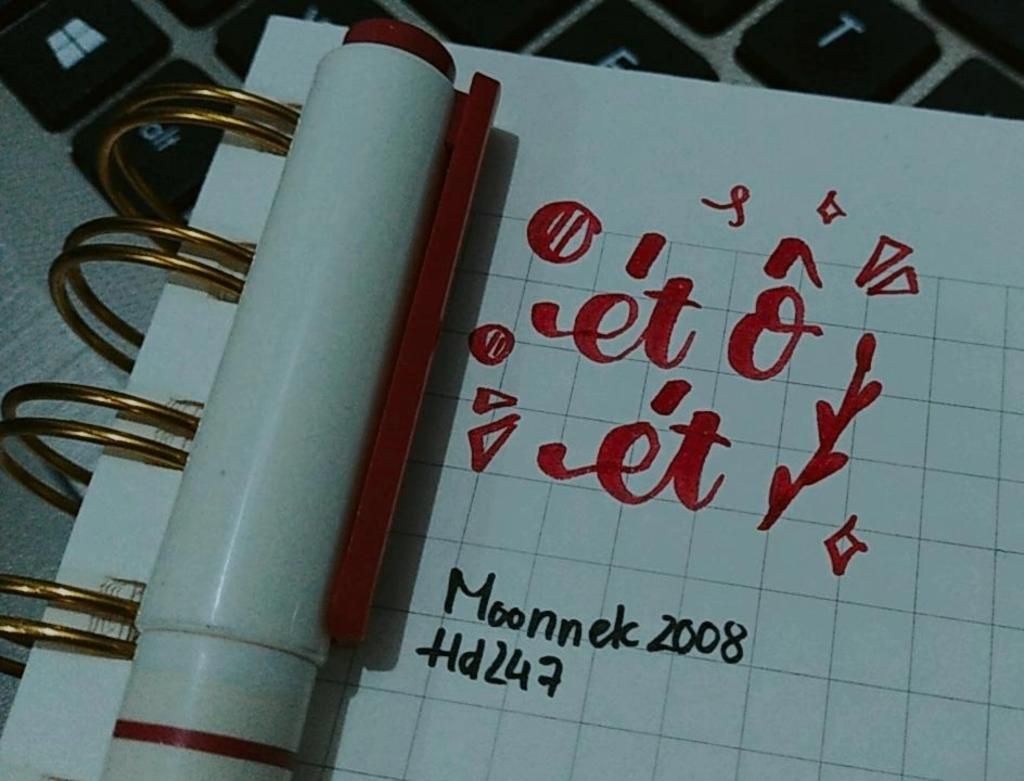 T
alt
ét ô
ét
Moonnek2008
Hd247